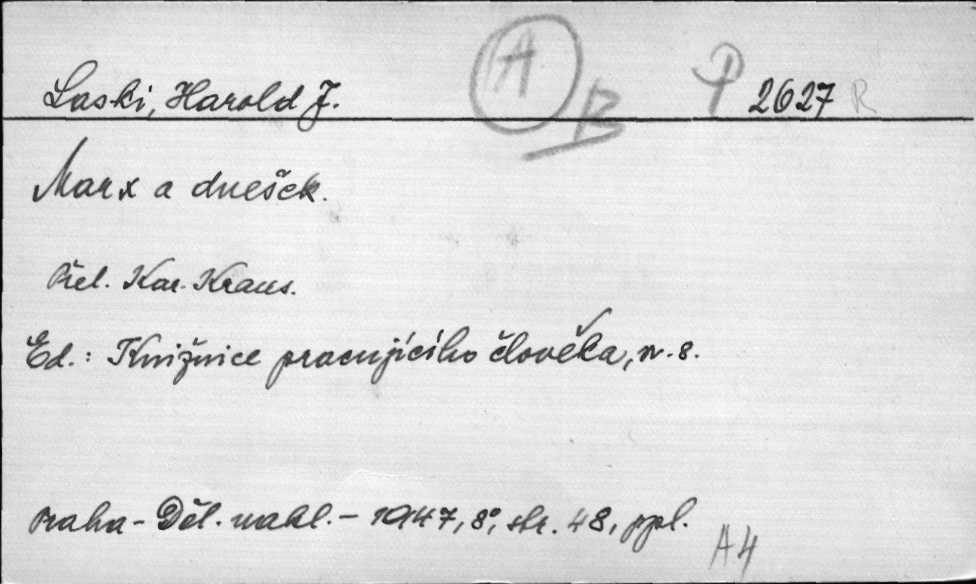 A
Laski, Harold J.
P 2627 R
B
Marx a dnešek.
Přel. Kar. Kraus.
Ed.: Knižnice pracujícího člověka, sv. 8.
Praha - Děl. nakl. - 1947, 8°, str. 48, ppl.
A4